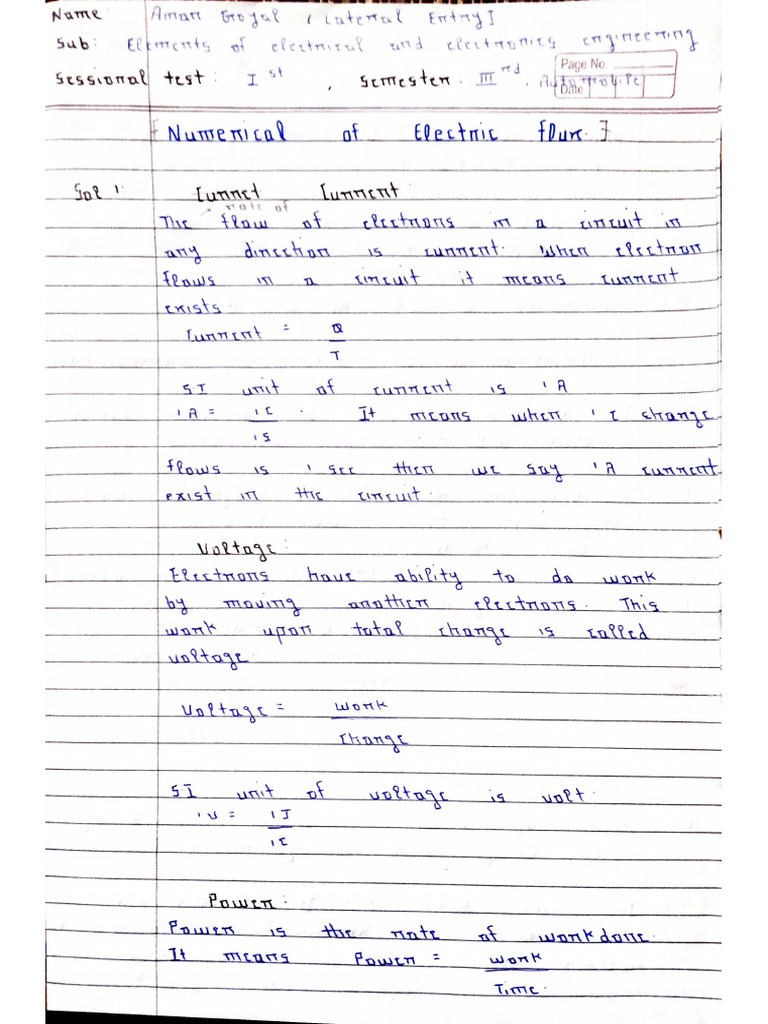 Name: Aman Goyal (Lateral Entry]
Sub: Elements of electrical and electronics engineering
Sessional test: Ist, Semester: IIInd, Automobile
Page No
Date
[Numerical of Electric flux.]
Sol 1. Curret Current:
rate of
The flow of electrons in a circuit in
any direction is current. When electron
flows in a circuit it means current
exists.
Current = Q
T
SI unit of current is 1A
1A = 1C . It means when 1C charge
1S
flows is 1 sec then we say 1A current
exist in the circuit.
Voltage:
Electrons have ability to do work
by moving another electrons. This
work upon total charge is called
voltage.
Voltage = work
charge
SI unit of voltage is volt.
1v = 1J
1C
Power:
Power is the rate of workdone.
It means Power = work
Time.